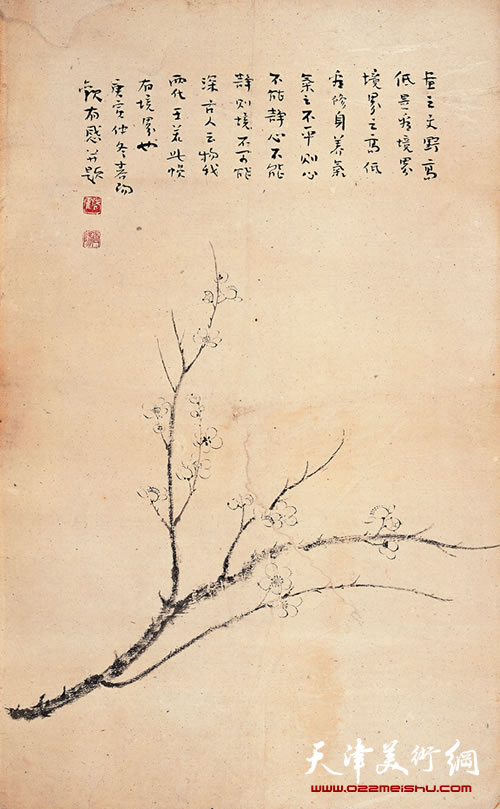 画之文野高
低是看境界
境界之高低
看修身养气
气之不平则心
不能静心不能
静则境不可能
深古人云物我
两化
有境界也
庚寅仲冬春阳
有感并题
天津美術網
www.022meishu.com